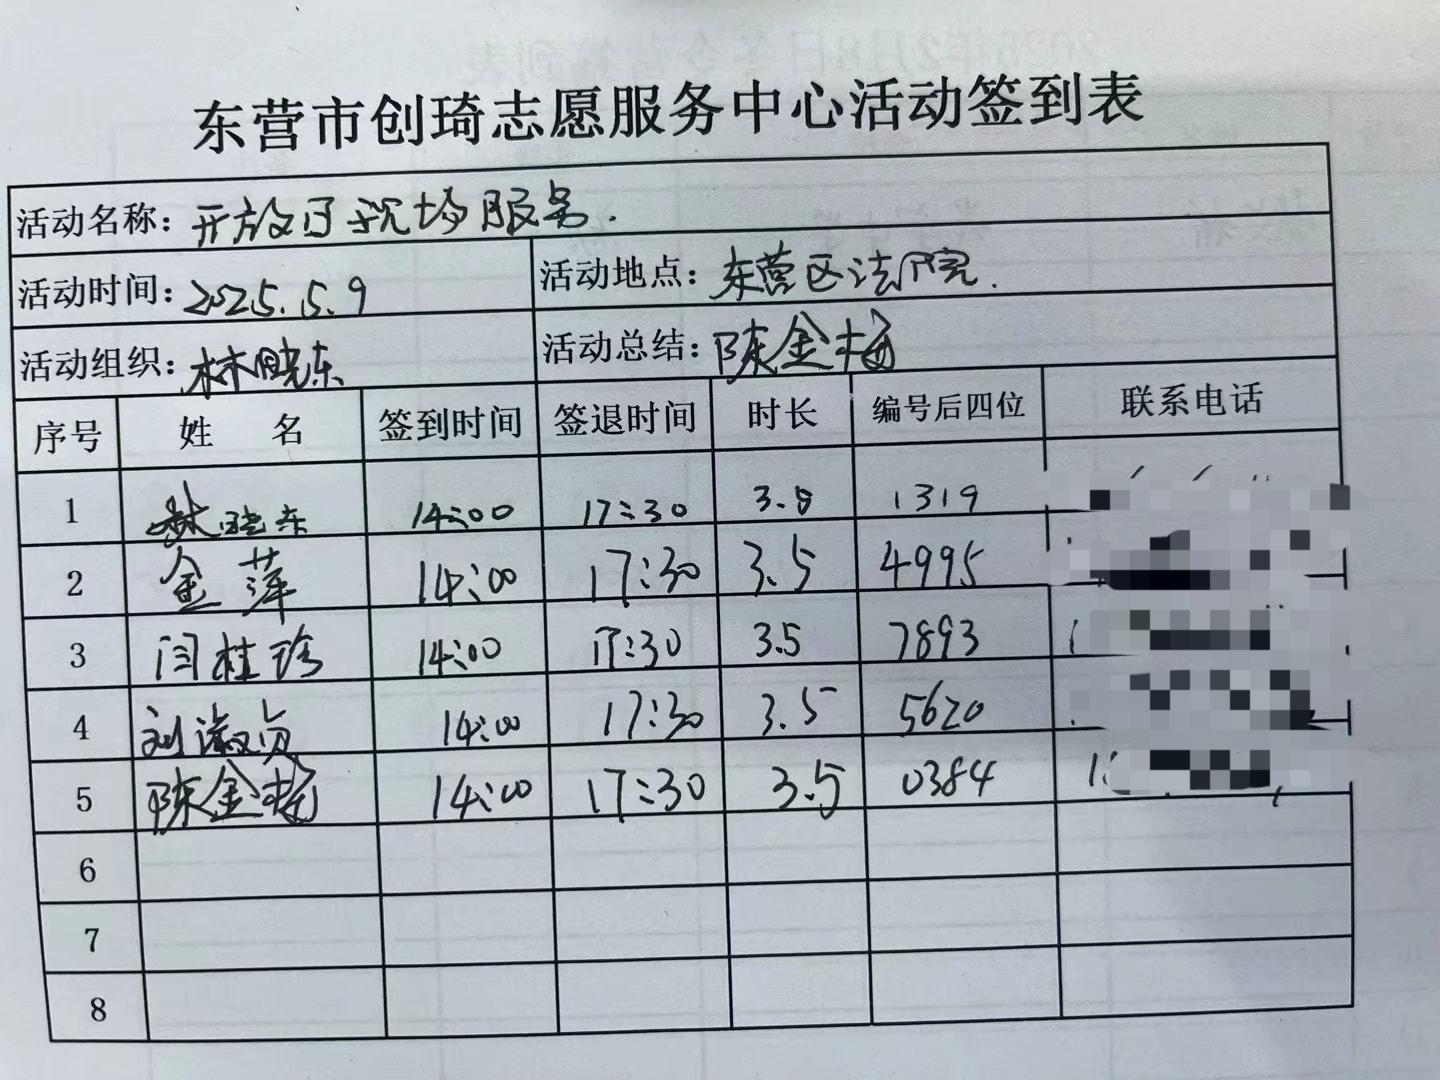 东营市创琦志愿服务中心活动签到表
活动名称：开放日现场服务.
活动时间：2025.5.9 活动地点：东营区法院.
活动组织：林晓东 活动总结：陈金梅
序号 姓 名 签到时间 签退时间 时长 编号后四位 联系电话
1 林晓东 14:00 17:30 3.5 1319
2 金萍 14:00 17:30 3.5 4995
3 闫桂珍 14:00 17:30 3.5 7893
4 刘淑贞 14:00 17:30 3.5 5620
5 陈金梅 14:00 17:30 3.5 0384
6
7
8